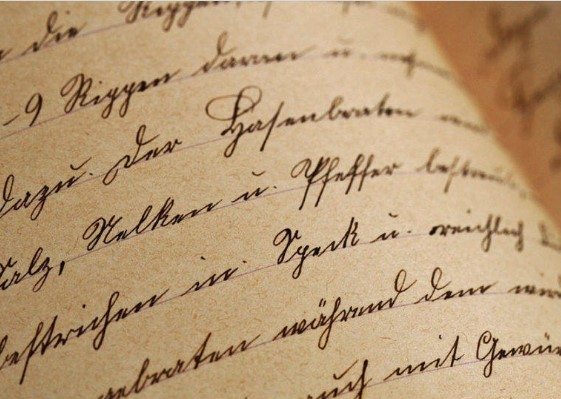 die Rippen,
-9 Rippen daran u.
dazu. Der Hasenbraten
Salz, Nelken u. Pfeffer bestreut,
bestrichen m. Speck u. reichlich
gebraten während dem wird
auch mit Gewür